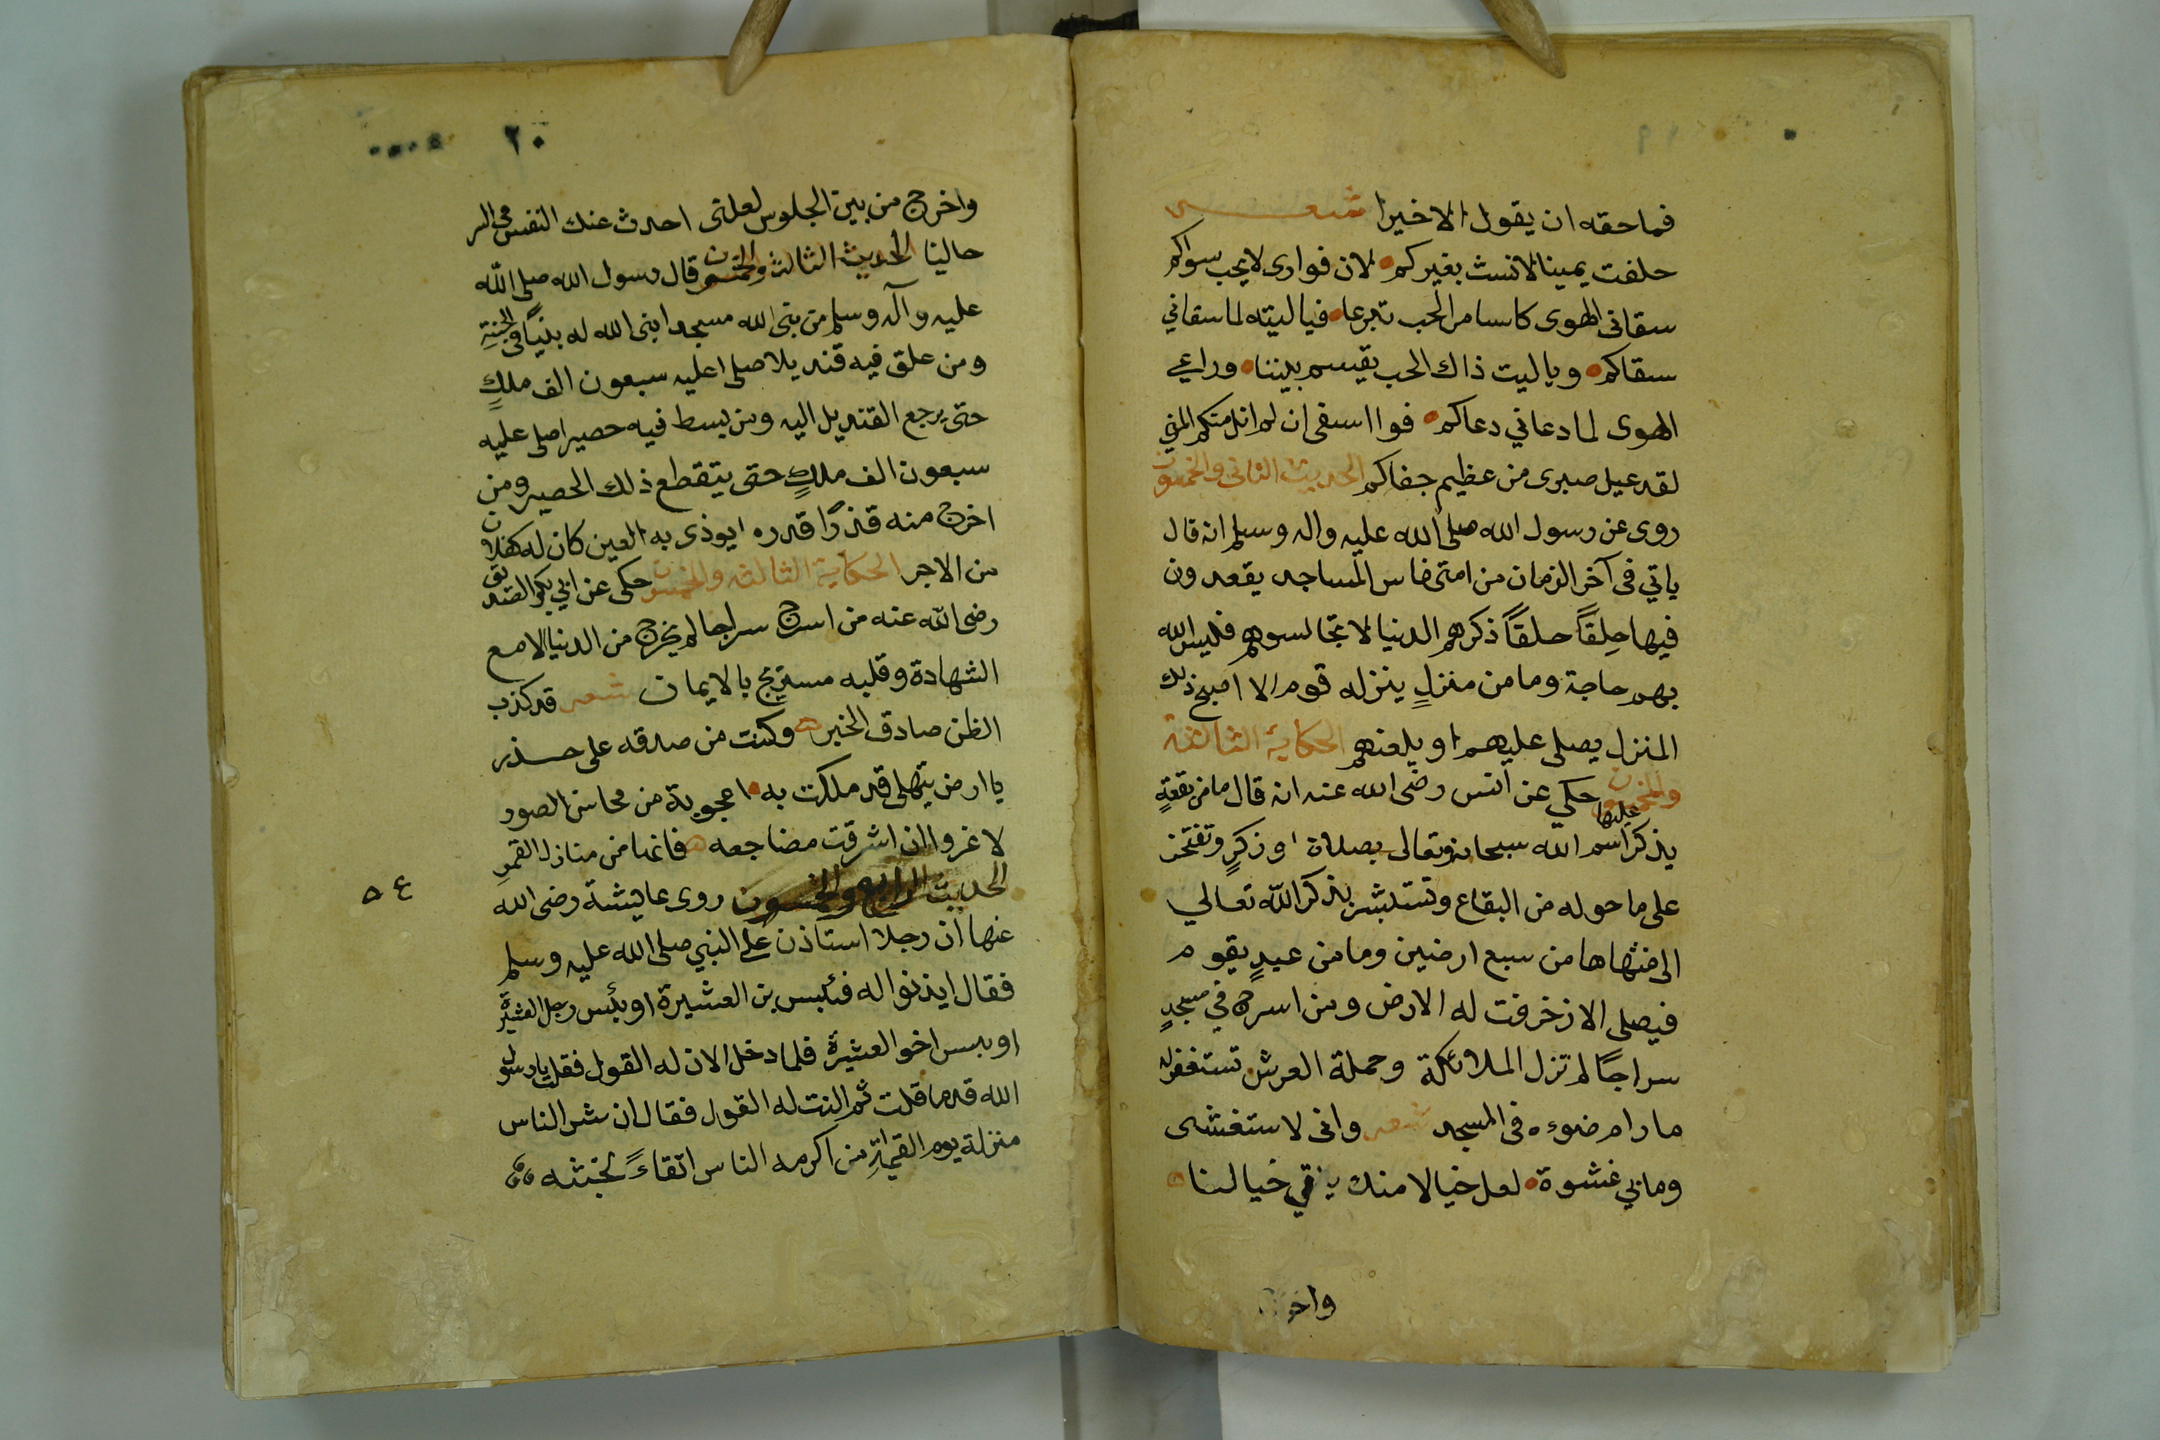 فماحقه ان يقول الاخيرا شعـــر
حلفت يمينا لانست بغيركم لان فوادى لا يحب سواكم
سقانى الهوى كاسا من الحب تبرعا فيا ليته لما سقاني
سقاكم ويا ليت ذاك الحب يقسم بيننا وراعي
الهوى لما دعاني دعاكم فوا اسفى ان لم انل منكم المنى
لقد عيل صبرى من عظيم جفاكم الحديث الثانى والخمسون
روى عن رسول الله صلى الله عليه واله وسلم انه قال
ياتي فى آخر الزمان من امتى ناس المساجد يقعدون
فيها حِلِقًاً حلقاً ذكرهم الدنيا لا تجالسوهم فليس لله
بهم حاجة وما من منزلٍ ينزله قوم الا اصبح ذلك
المنزل يصلى عليهم او يلعنهم الحكاية الثالثة
والخمسون حكي عن انس رضى الله عنه انه قال ما من بقعةٍ
يذكر عليها اسم الله سبحانه وتعالى بصلاة او ذكرٍ وتفتخر
على ما حوله من البقاع وتستبشر بذكر الله تعالي
الى منتهاها من سبع ارضين وما من عبدٍ يقوم
فيصلى الا زخرفت له الارض ومن اسرج في مسجدٍ
سراجًا لم تزل الملائكة وحملة العرش تستغفر له
مادام ضوءه فى المسجد شعر وانى لاستغشى
وما بي غشوة لعل خيالا منك يلقي خياليا
واخرج
٢٠
واخرج من بين الجلوس لعلتى احدث عنك النفس فى السر
حاليا الحديث الثالث والخمسون قال رسول الله صلى الله
عليه وآله وسلم من بنى الله مسجدا بنى الله له بيتًا فى الجنةِ
ومن علق فيه قنديلا صلى عليه سبعون الف ملكٍ
حتى يرجع القنديل اليه ومن بسط فيه حصيرا صلى عليه
سبعون الف ملكٍ حتى يتقطع ذلك الحصير ومن
اخرج منه قذرًا قدره ايوذى به العين كان له كفلان
من الاجر الحكاية الثالثه والخمسون حكى عن ابي بكر الصديق
رضى الله عنه من اسرج سراجا لم يخرج من الدنيا الا مع
الشهادة وقلبه مستريح بالايمان شعر قد كذب
الظن صادق الخبر وكنت من صدقه على حــذر
يا ارض تيهى قد ملكت به اعجوبة من محاسن الصور
لا غروا ان اشرقت مضاجعه فانها من منازل القمر
الحديث الرابع والخمسون روى عايشة رضى الله
٥٤
عنها ان رجلا استاذن على النبي صلى الله عليه وسلم
فقال ايذنوا له فبئس بن العشيرة او بئس رجل العشيرة
او بيس اخو العشيرة فلما دخل الان له القول فقلت يا رسول
الله قد ما قلت ثم النت له القول فقال ان شر الناس
منزلة يوم القيمةِ من اكرمه الناس اتقاءً لخبثه